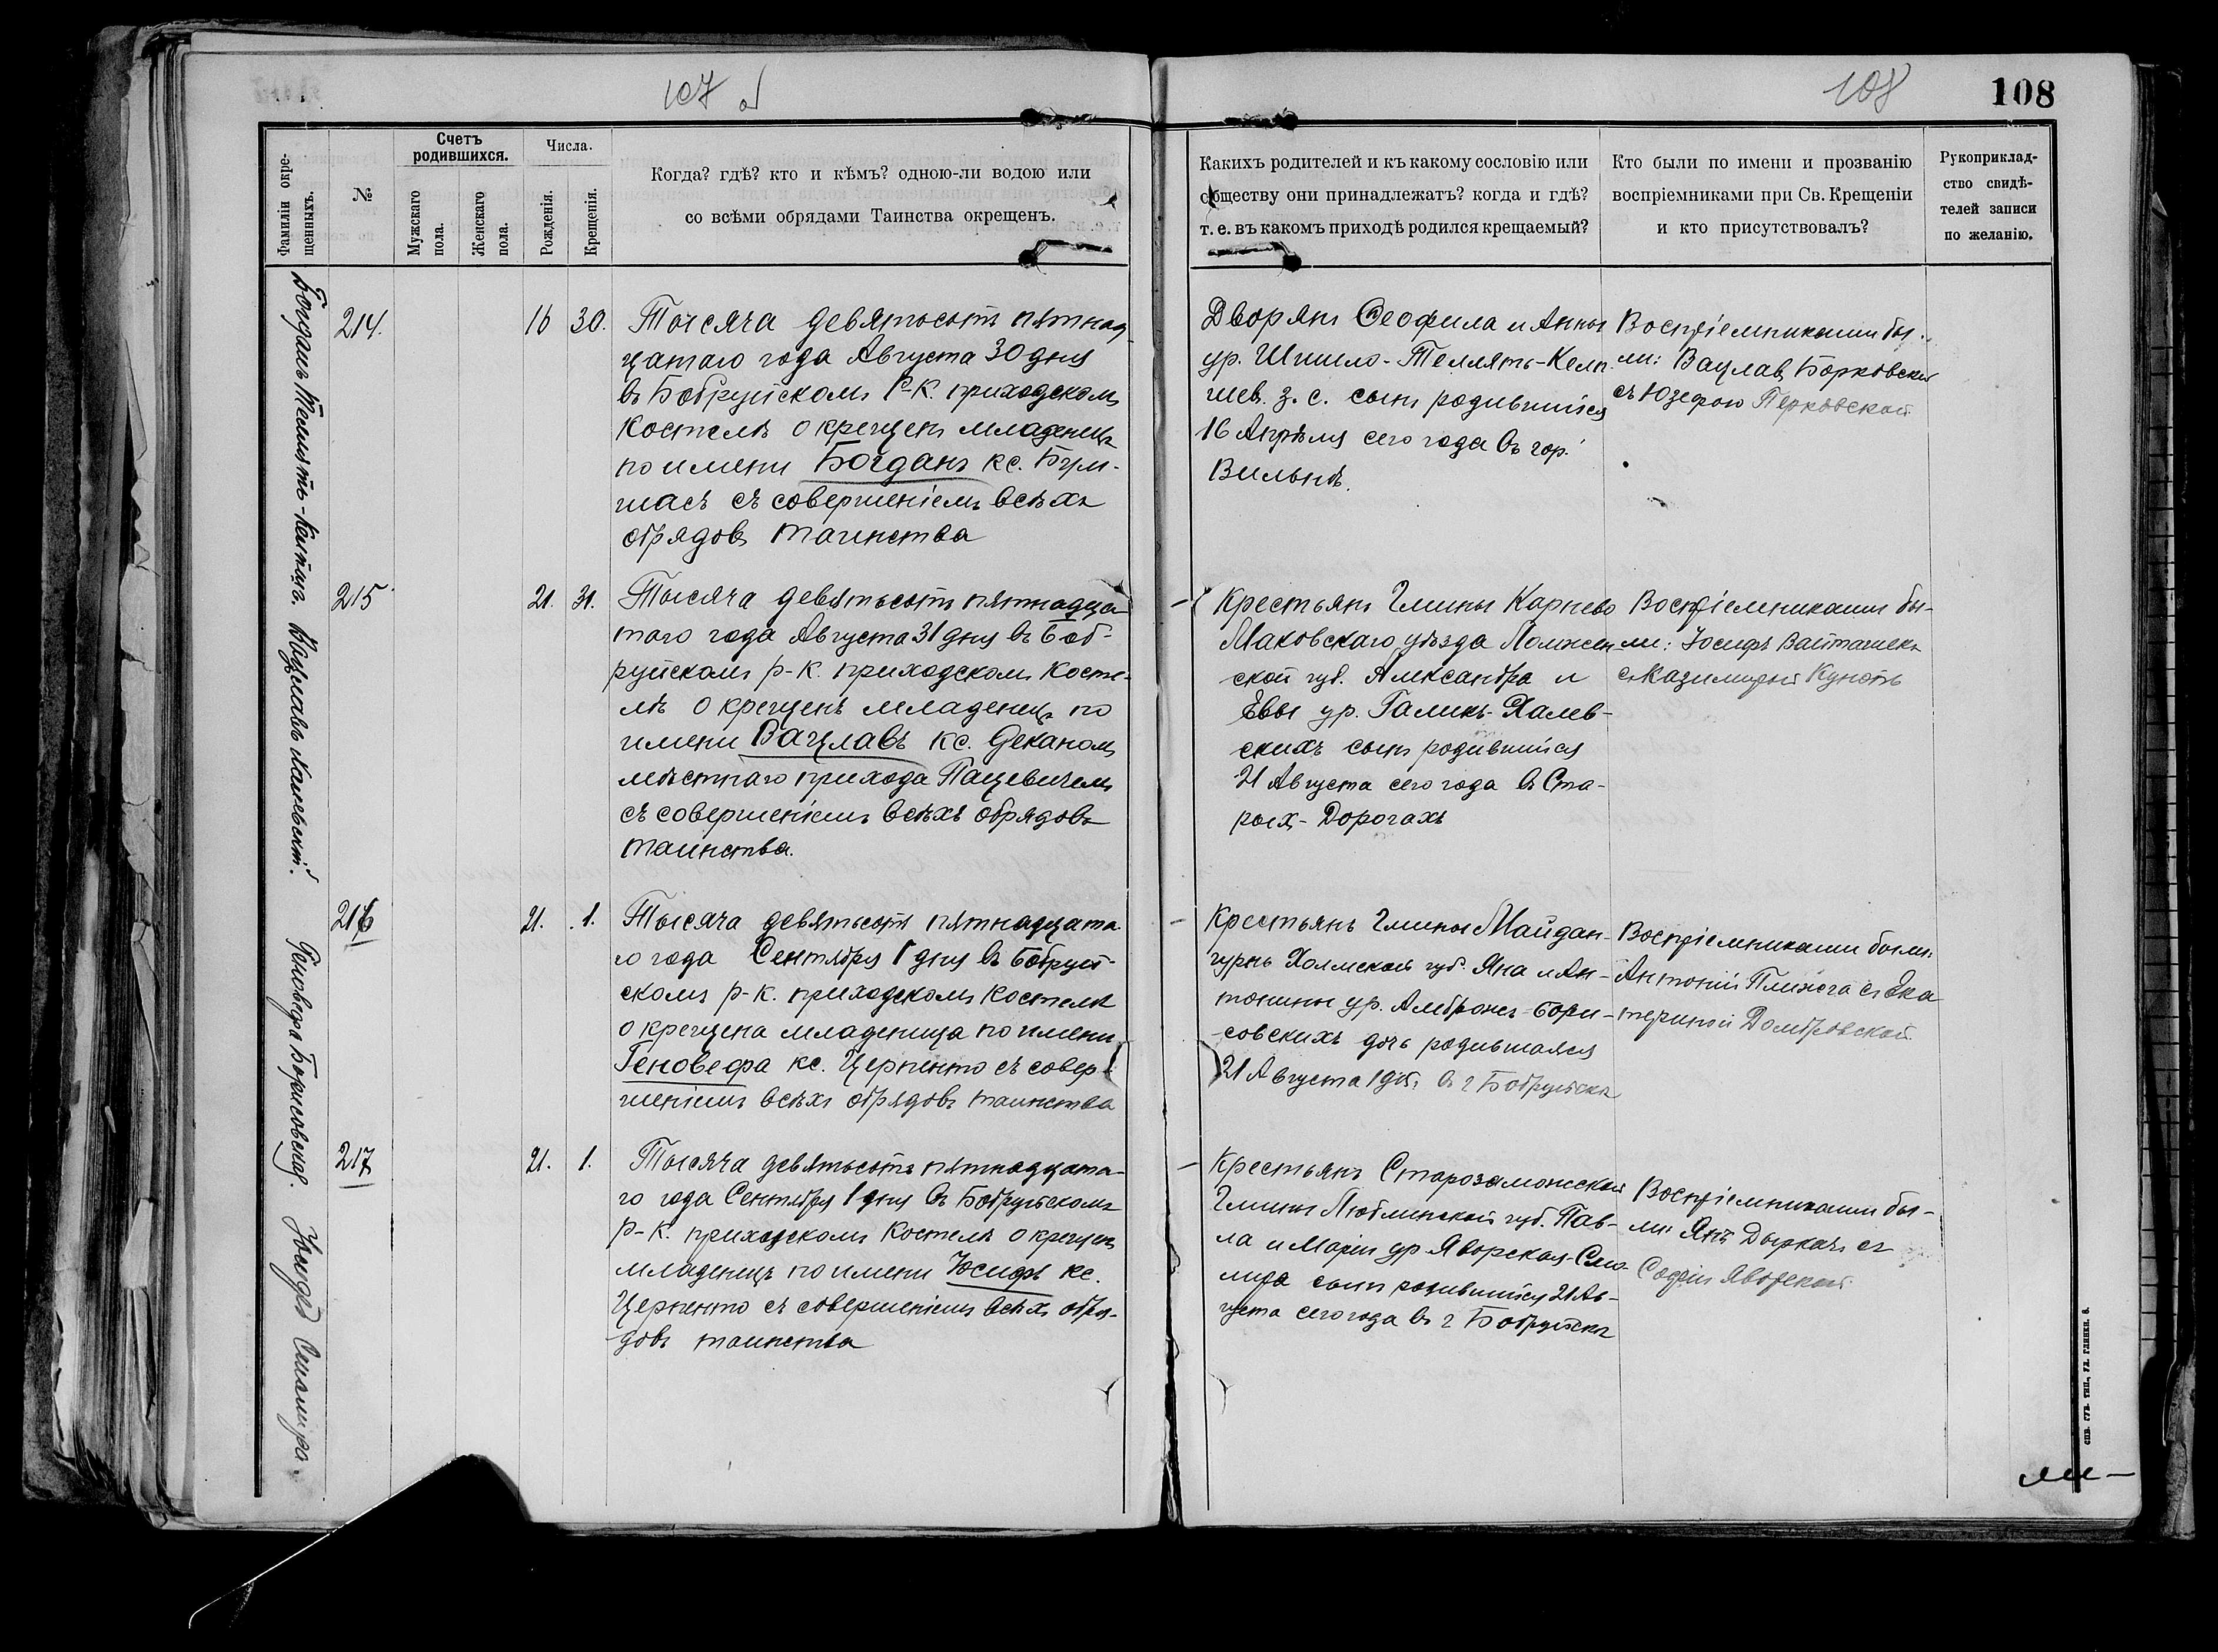 107 об
108
108
Фамиліи окре-
щенныхъ.
№
Счетъ
родившихся.
Мужскаго
пола.
Женскаго
пола.
Числа.
Рожденія.
Крещенія.
Когда? гдѣ? кто и кѣмъ? одною-ли водою или
со всѣми обрядами Таинства окрещенъ.
Какихъ родителей и къ какому сословію или
обществу они принадлежатъ? когда и гдѣ?
т. е. въ какомъ приходѣ родился крещаемый?
Кто были по имени и прозванію
воспріемниками при Св. Крещеніи
и кто присутствовалъ?
Рукоприклад-
ство свидѣ-
телей записи
по желанію.
Богданъ
214.
16 30.
Тысяча девятьсотъ пятнад-
цатаго года Августа 30 дня
въ Бобруйскомъ Р-К. приходскомъ
Костелѣ окрещенъ младенецъ
по имени Богданъ кс.
съ совершеніемъ всѣхъ
обрядовъ таинства
Дворянъ Ѳеофила и Анны
ур. Шишло-Теллятъ-Келп
шев. з. с. сынъ родившійся
16 Апрѣля сего года въ гор.
Вильнѣ.
Воспріемниками бы-
ли: Вацлавъ Борковскій
съ Юзефою
Вацлавъ Халевскій.
215
21. 31.
Тысяча девятьсотъ пятнадца-
таго года Августа 31 дня въ Боб-
руйскомъ р-к. приходскомъ Косте-
лѣ окрещенъ младенецъ по
имени Вацлавъ кс. Деканомъ
мѣстнаго прихода Пацевичемъ
съ совершеніемъ всѣхъ обрядовъ
таинства.
Крестьянъ Гмины Карнево
Маковскаго уѣзда Ломжин
ской губ. Александра и
Евы ур. Галикъ-Халев-
скихъ сынъ родившійся
21 Августа сего года въ Ста-
рыхъ-Дорогахъ
Воспріемниками бы-
ли: Іосифъ Войташекъ
съ Казимирой
Геновефа Борисовская.
216
21. 1.
Тысяча девятьсотъ пятнадцата-
го года Сентября 1 дня въ Бобруй-
скомъ р-к. приходскомъ Костелѣ
окрещена младеница по имени
Геновефа кс. Церпенто съ совер-
шеніемъ всѣхъ обрядовъ таинства
Крестьянъ Гмины Майдан-
Холмской губ. Яна и Ан-
тонины ур. Амброжъ-Бори-
совскихъ дочь родившаяся
21 Августа 1915 г. въ г Бобруйскѣ
Воспріемниками были:
Антоній съ Ека
териной Домбровской
Іосифъ Сколимра.
217
21. 1.
Тысяча девятьсотъ пятнадцата-
го года Сентября 1 дня въ Бобруйскомъ
р-к. приходскомъ Костелѣ окрещенъ
младенецъ по имени Юсифъ кс.
Церпенто съ совершеніемъ всѣхъ обря-
довъ таинства
Крестьянъ Старозамойской
Гмины Люблинской губ. Пав-
ла и Маріи ур Яворская-
сынъ родившійся 21 Ав-
густа сего года въ г Бобруйскѣ
Воспріемниками бы-
ли: Янъ Дыркачъ съ
Софіи Яворской
СПБ. ГУБ. ТИП., УЛ. ГЛИНКИ. 8.